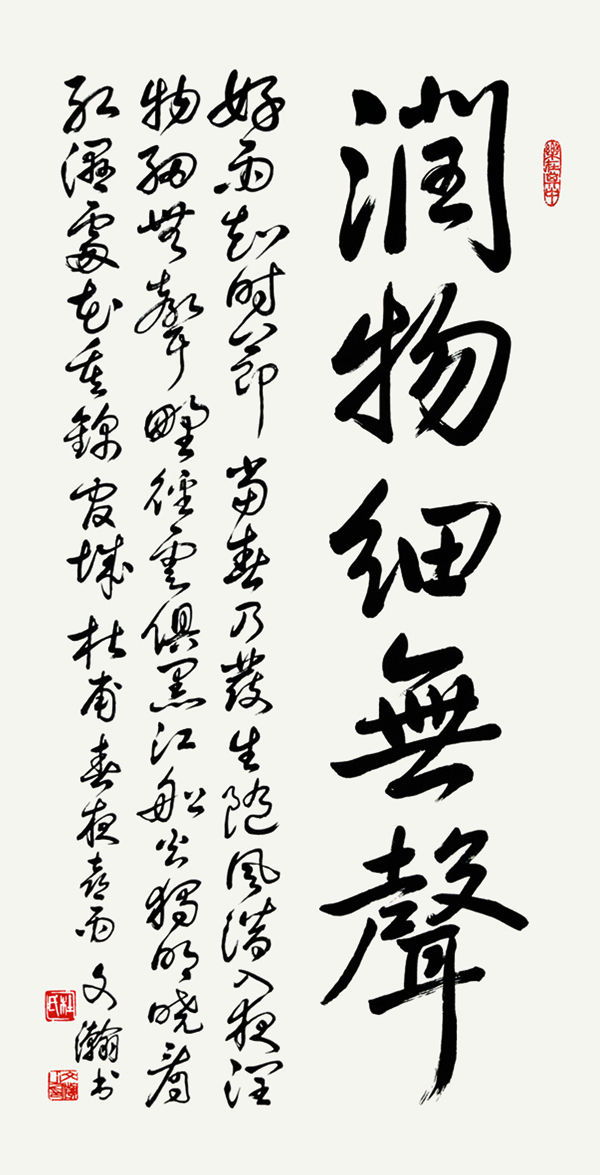 樂在其中
潤物細無聲
好雨知时節當春乃發生随風潛入夜潤
物細無聲野徑雲俱黑江船火獨明曉看
紅濕處花重錦官城 杜甫春夜喜雨 文瀚书
杜氏